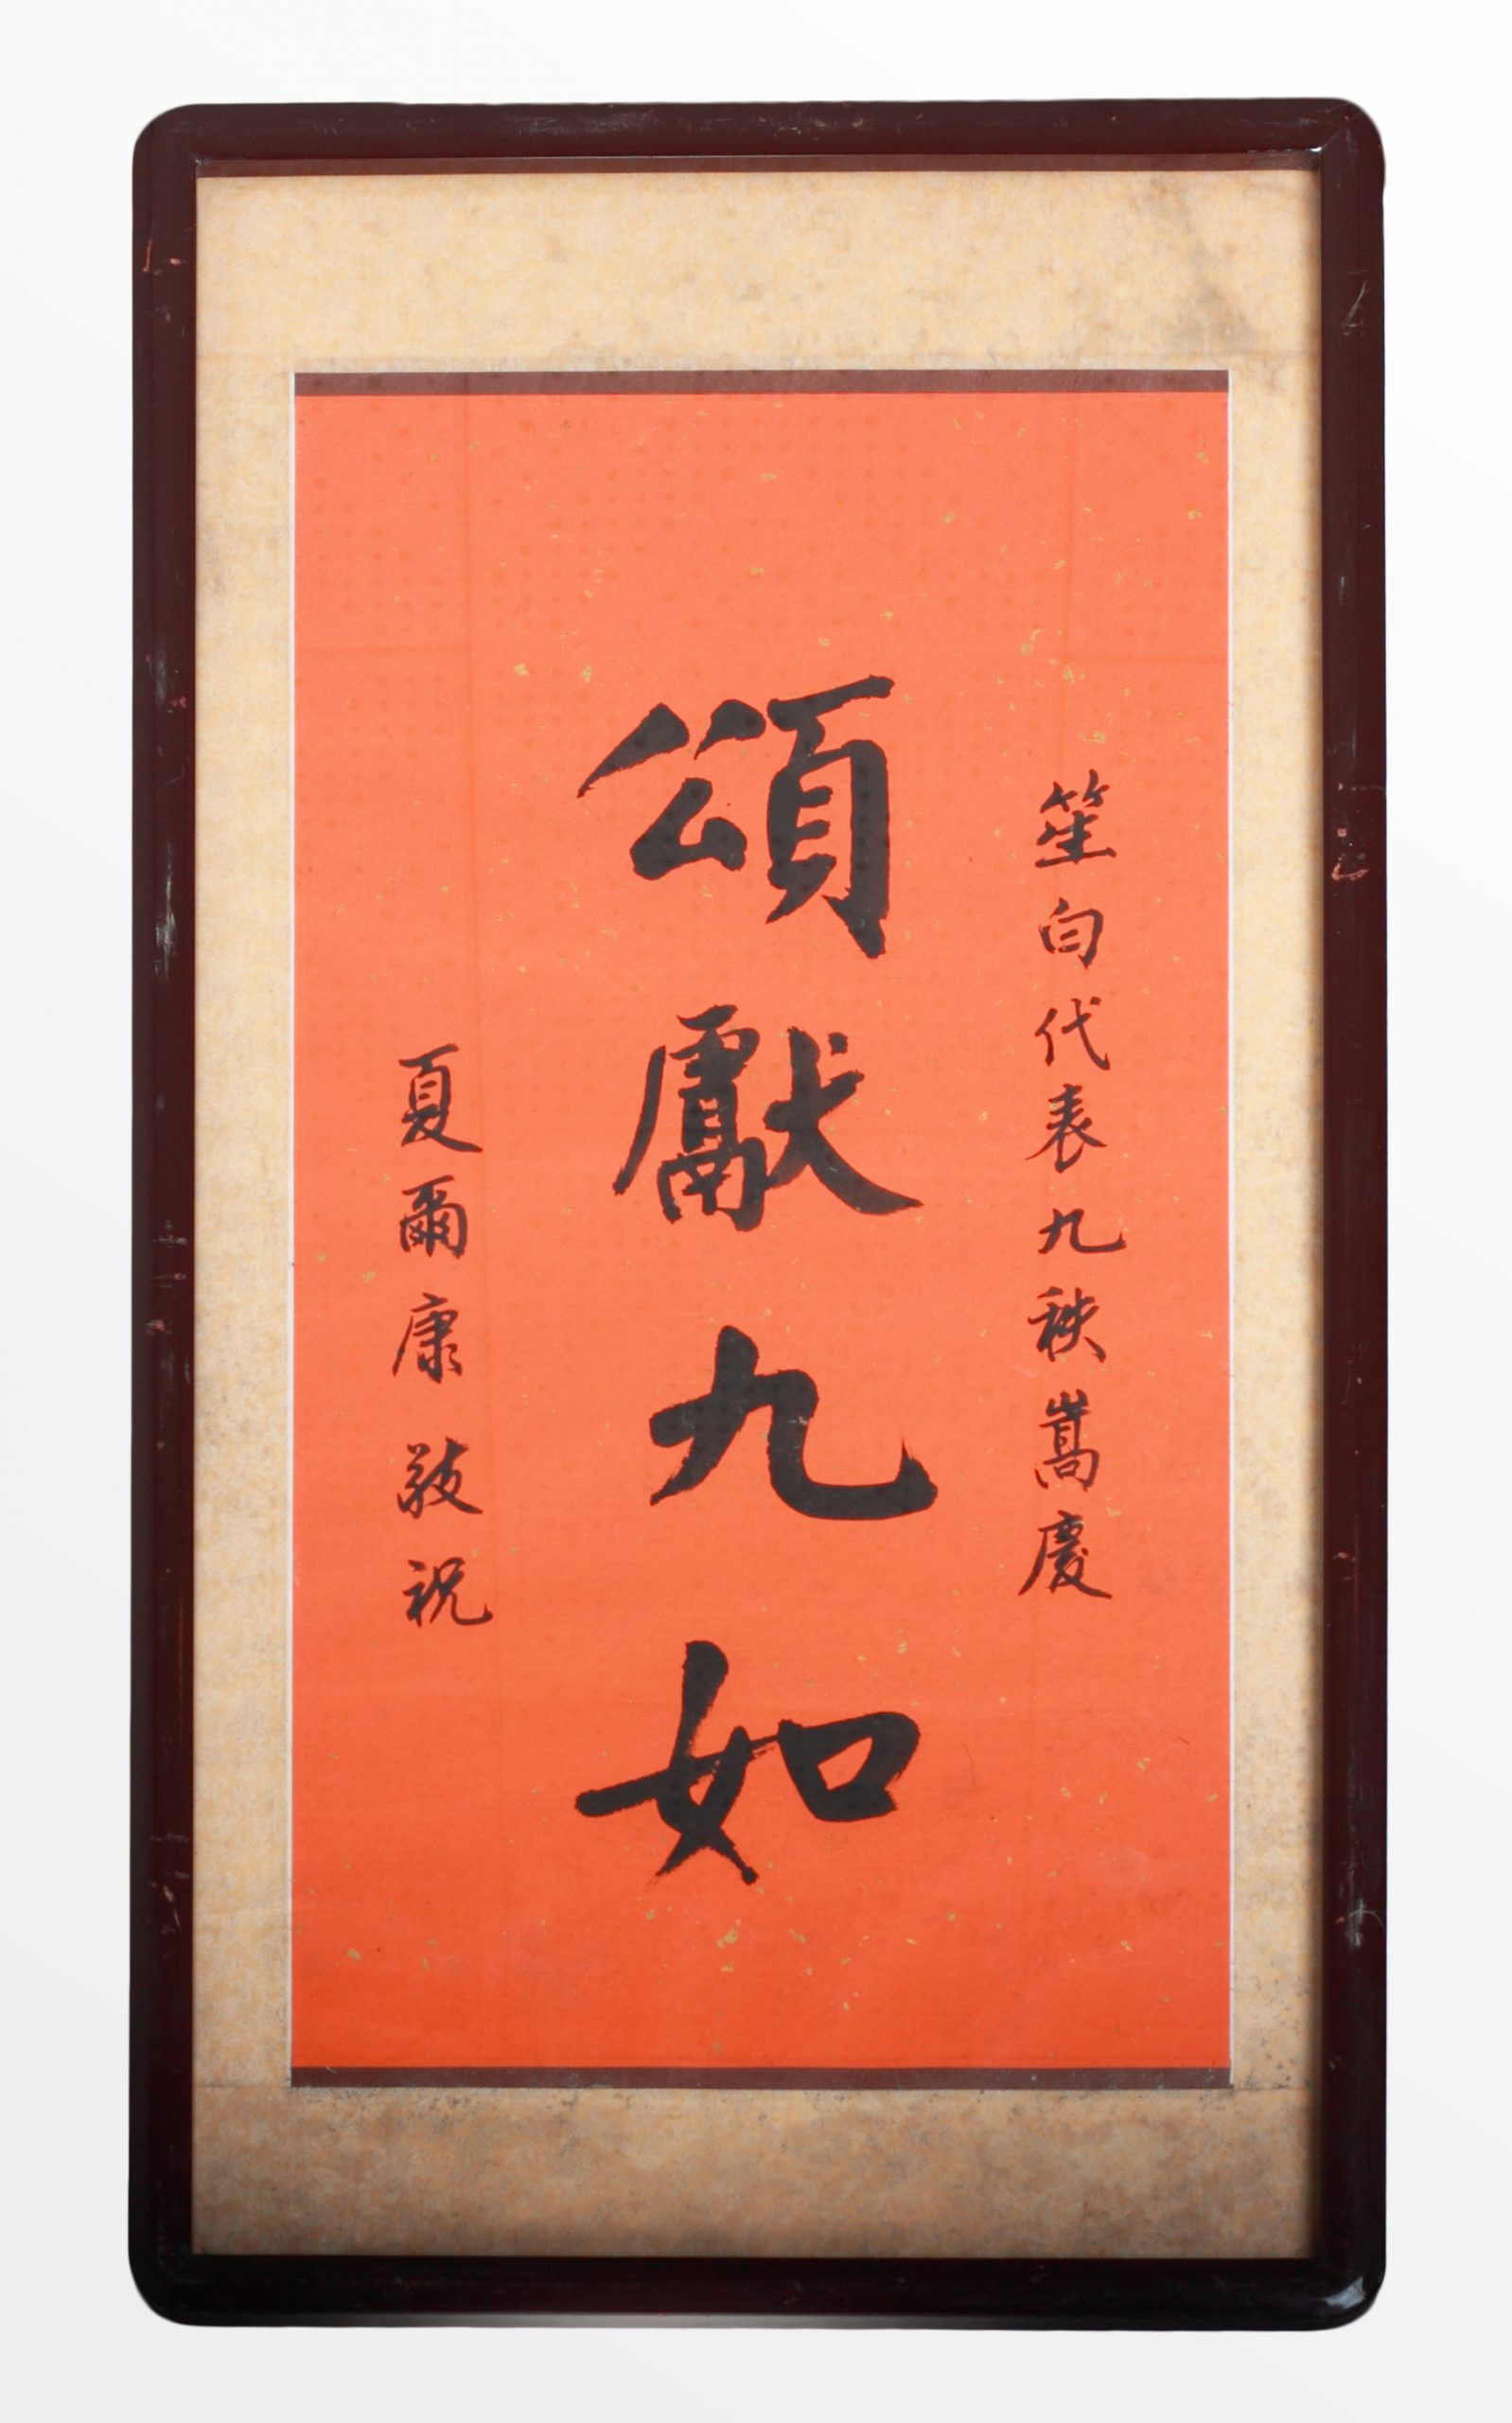 笙白代表九秩嵩慶
頌獻九如
夏爾康敬祝